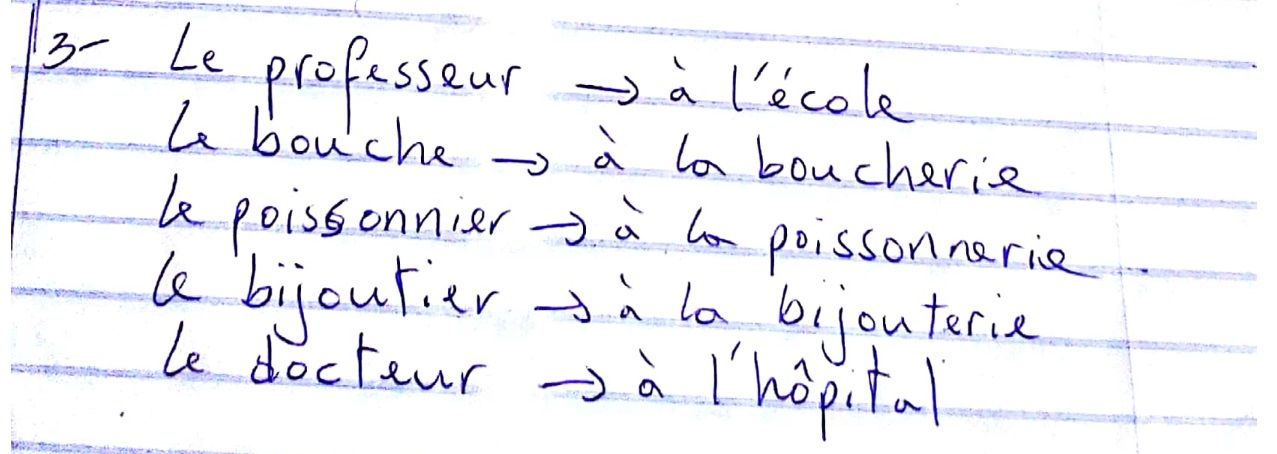 3- Le professeur → à l'école
le bouche → à la boucherie
le poissonnier → à la poissonnerie
le bijoutier → à la bijouterie
le docteur → à l'hôpital